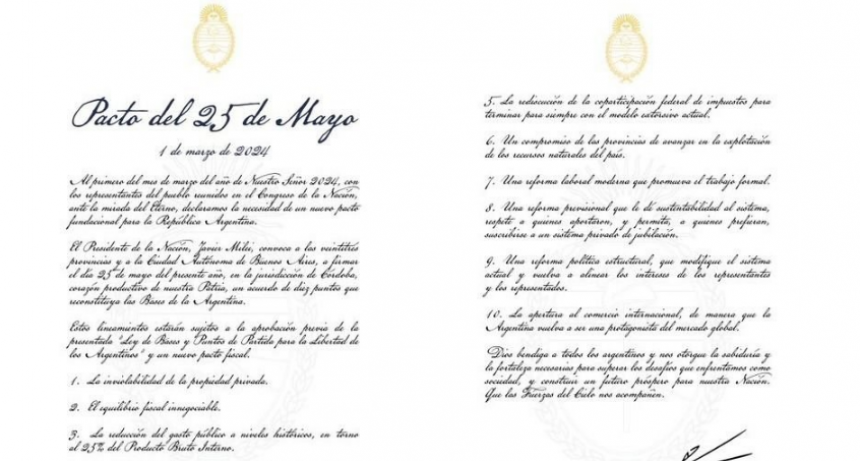 Pacto del 25 de Mayo
1 de marzo de 2024
Al primero del mes de marzo del año de Nuestro Señor 2024, con
los representantes del pueblo reunidos en el Congreso de la Nación,
ante la mirada del Eterno, declaramos la necesidad de un nuevo pacto
fundacional para la República Argentina.
El Presidente de la Nación, Javier Milei, convoca a las veintitrés
provincias y a la Ciudad Autónoma de Buenos Aires, a firmar
el día 25 de mayo del presente año, en la jurisdicción de Córdoba,
corazón productivo de nuestra Patria, un acuerdo de diez puntos que
reconstituya las Bases de la Argentina.
Estos lineamientos estarán sujetos a la aprobación previa de la
presentada "Ley de Bases y Puntos de Partida para la Libertad de
los Argentinos" y un nuevo pacto fiscal.
1. La inviolabilidad de la propiedad privada.
2. El equilibrio fiscal innegociable.
3. La reducción del gasto público a niveles históricos, en torno
al 25% del Producto Bruto Interno.
5. La rediscusión de la coparticipación federal de impuestos para
terminar para siempre con el modelo extorsivo actual.
6. Un compromiso de las provincias de avanzar en la explotación
de los recursos naturales del país.
7. Una reforma laboral moderna que promueva el trabajo formal.
8. Una reforma previsional que le dé sustentabilidad al sistema,
respete a quienes aportaron, y permita, a quienes prefieran,
suscribirse a un sistema privado de jubilación.
9. Una reforma política estructural, que modifique el sistema
actual y vuelva a alinear los intereses de los representantes
y los representados.
10. La apertura al comercio internacional, de manera que la
Argentina vuelva a ser una protagonista del mercado global.
Dios bendiga a todos los argentinos y nos otorgue la sabiduría y
la fortaleza necesarias para superar los desafíos que enfrentamos como
sociedad, y construir un futuro próspero para nuestra Nación.
Que las Fuerzas del Cielo nos acompañen.